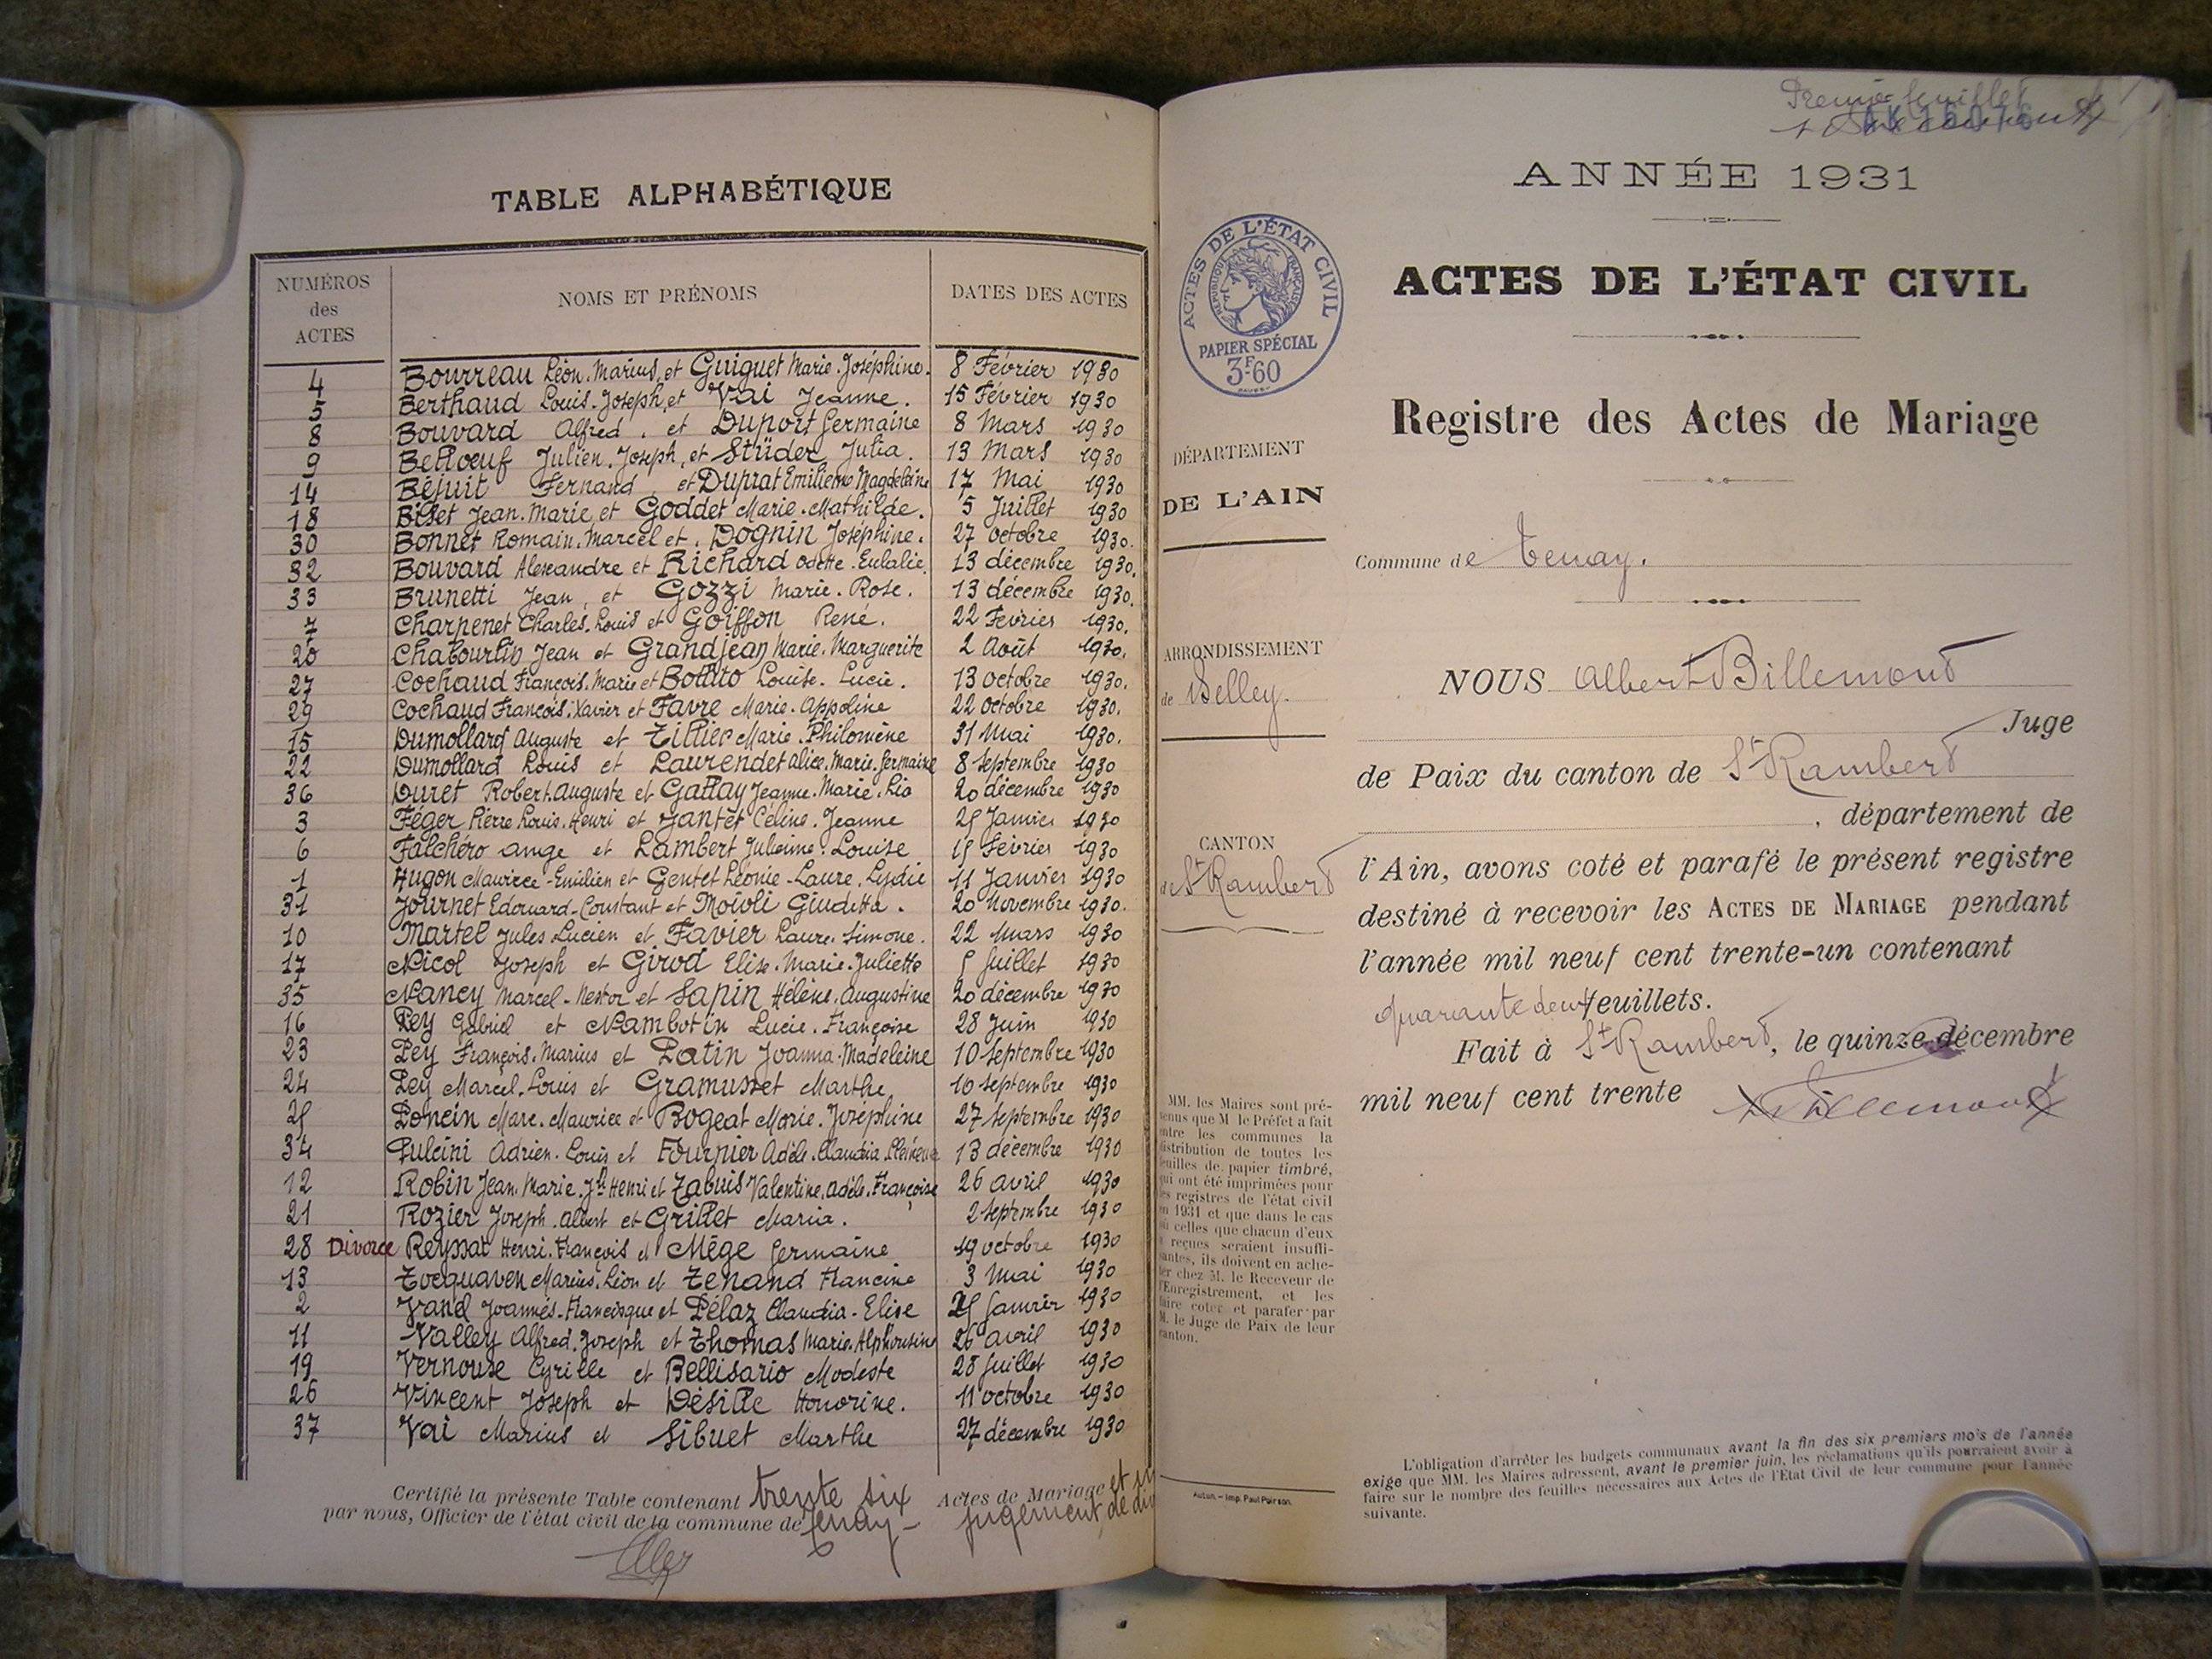 TABLE ALPHABÉTIQUE
NUMÉROS des ACTES NOMS ET PRÉNOMS DATES DES ACTES
4 Bourreau Léon. Marius, et Guiguet Marie. Joséphine. 8 Février 1930
5 Berthaud Louis. Joseph, et Vai Jeanne. 15 Février 1930
8 Bouvard Alfred, et Duport Germaine 8 Mars 1930
9 Bellœuf Julien. Joseph, et Stüder Julia. 13 Mars 1930
14 Béjuit Fernand et Duprat Emilienne Magdeleine 17 Mai 1930
18 Biset Jean. Marie et Goddet Marie. Mathilde. 5 Juillet 1930
30 Bonnet Romain. Marcel et Dognin Joséphine. 27 octobre 1930.
32 Bouvard Alexandre et Richard Odette. Eulalie. 13 décembre 1930.
33 Brunetti Jean, et Gozzi Marie. Rose. 13 décembre 1930.
7 Charpenet Charles. Louis et Goiffon René. 22 Février 1930.
20 Chabourlin Jean et Grandjean Marie. Marguerite 2 Août 1930.
27 Cochaud François. Marie et Bottito Louise. Lucie. 13 octobre 1930.
29 Cochaud François. Xavier et Favre Marie. Appoline 22 octobre 1930.
15 Dumollard Auguste et Tillier Marie. Philomène 31 Mai 1930.
22 Dumollard Louis et Laurendet Alice. Marie. Germaine 8 Septembre 1930
36 Duret Robert. Auguste et Gattay Jeanne. Marie. Lia 20 décembre 1930
3 Féger Pierre Louis. Henri et Jantet Céline. Jeanne 25 Janvier 1930
6 Falchéro Ange et Lambert Julienne. Louise 15 Février 1930
1 Hugon Maurice-Emilien et Gentet Léonie-Laure. Lydie 11 Janvier 1930
31 Journet Edouard-Constant et Moioli Giuditta. 20 Novembre 1930.
10 Martel Jules Lucien et Favier Laure. Simone. 22 Mars 1930
17 Nicol Joseph et Girod Elise. Marie. Juliette 5 Juillet 1930
35 Nancy Marcel-Nestor et Sapin Hélène. Augustine 20 décembre 1930
16 Pey Gabriel et Nambotin Lucie. Françoise 28 Juin 1930
23 Pey François. Marius et Patin Joanna. Madeleine 10 Septembre 1930
24 Pey Marcel. Louis et Gramusset Marthe 16 septembre 1930
25 Poncin Marc. Maurice et Bogeat Marie. Joséphine 27 Septembre 1930
34 Pulcini Adrien. Louis et Fournier Adèle. Claudia 13 décembre 1930
12 Robin Jean. Marie. Jh Henri et Zabuis Valentine. Adèle. Françoise 26 avril 1930
21 Rozier Joseph. Albert et Grillet Maria. 2 Septembre 1930
28 Divorce Reyssat Henri. François et Mège Germaine 19 octobre 1930
13 Tocquaven Marius. Léon et Tenand Francine 3 Mai 1930
2 Vand Joannès-Francisque et Pélaz Claudia-Elise 25 Janvier 1930
11 Valley Alfred. Joseph et Thomas Marie. Alphonsine 26 avril 1930
19 Vernoux Cyrille et Bellisario Modeste 28 Juillet 1930
26 Vincent Joseph et Désille Honorine. 11 octobre 1930
37 Vai Marius et Sibuet Marthe 27 décembre 1930
Certifié la présente Table contenant trente six Actes de Mariage et
par nous, Officier de l'état civil de la commune de Tenay - jugement de
Premier feuillet
ANNÉE 1931
ACTES DE L'ÉTAT CIVIL
RÉPUBLIQUE FRANÇAISE
PAPIER SPÉCIAL
3F60
ACTES DE L'ÉTAT CIVIL
Registre des Actes de Mariage
DÉPARTEMENT
DE L'AIN
Commune de Tenay.
ARRONDISSEMENT
de Belley.
CANTON
de St Rambert
NOUS Albert Billemont
Juge
de Paix du canton de St Rambert
, département de
l'Ain, avons coté et parafé le présent registre
destiné à recevoir les ACTES DE MARIAGE pendant
l'année mil neuf cent trente-un contenant
quarante deux feuillets.
Fait à St Rambert, le quinze décembre
mil neuf cent trente
MM. les Maires sont pré-
venus que M le Préfet a fait
entre les communes la
distribution de toutes les
feuilles de papier timbré,
qui ont été imprimées pour
les registres de l'état civil
en 1931 et que dans le cas
où celles que chacun d'eux
a reçues seraient insuffi-
santes, ils doivent en ache-
ter chez M. le Receveur de
l'Enregistrement, et les
faire coter et parafer par
M. le Juge de Paix de leur
canton.
Autun. - Imp. Paul Poirson.
L'obligation d'arrêter les budgets communaux avant la fin des six premiers mois de l'année
exige que MM. les Maires adressent, avant le premier juin, les réclamations qu'ils pourraient avoir à
faire sur le nombre des feuilles nécessaires aux Actes de l'Etat Civil de leur commune pour l'année
suivante.